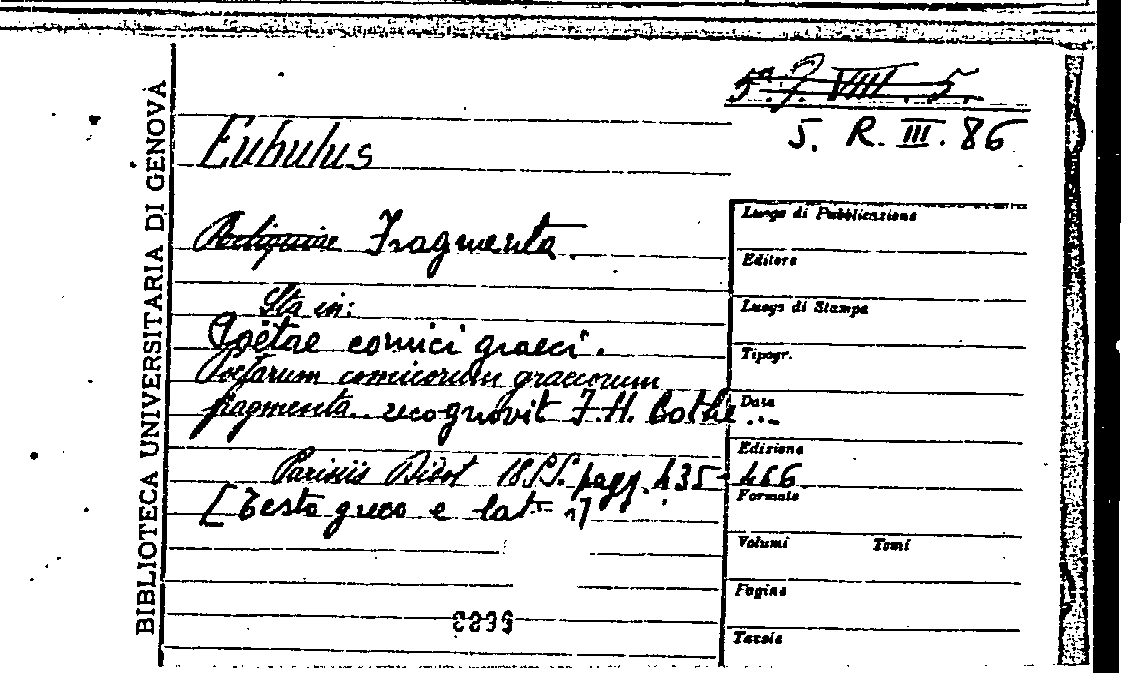 5ª. J. VIII. 5.
5. R. III. 86
BIBLIOTECA UNIVERSITARIA DI GENOVA
Eubulus
Reliquiae Fragmenta.
Sta in:
Poëtae comici graeci.
Poetarum comicorum graecorum
fragmenta recognovit F.H. Bothe ...
Parisiis Didot 1855. pagg. 435-466
[Testo greco e lat.]
Luogo di Pubblicazione
Editore
Luogo di Stampa
Tipogr.
Data
Edizione
Formato
Volumi Tomi
Pagine
Tavole